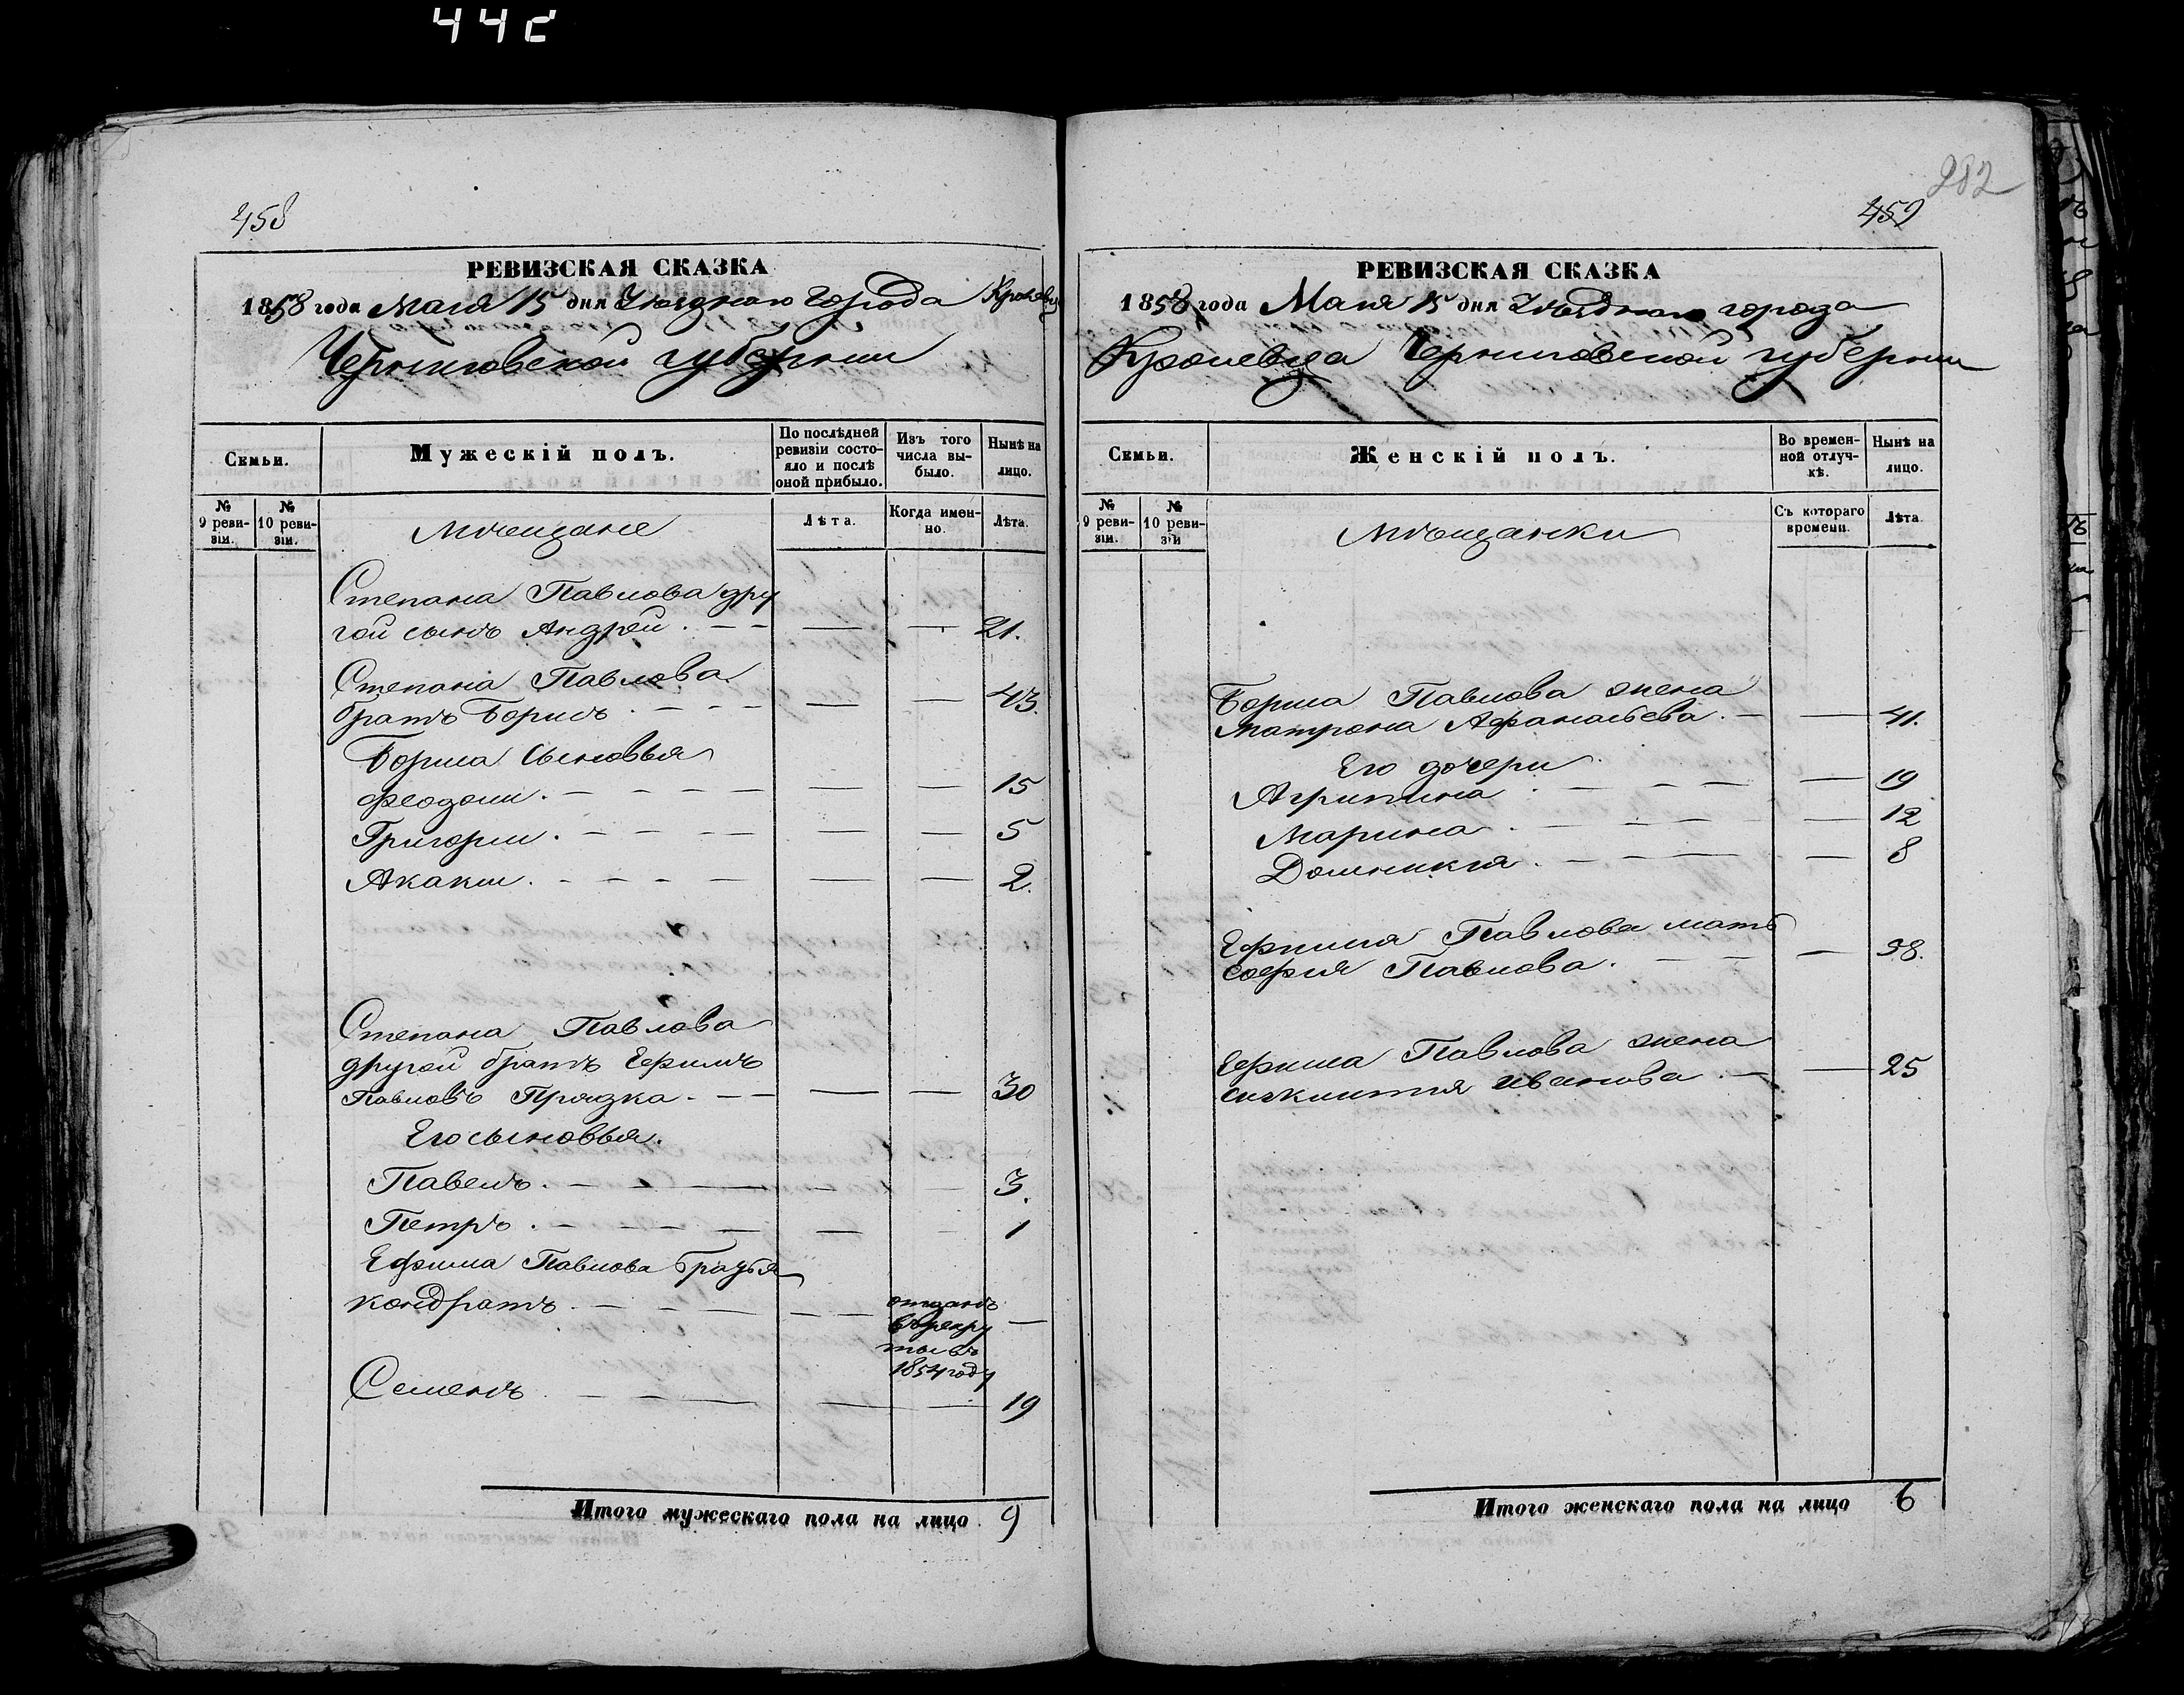 442
458
РЕВИЗСКАЯ СКАЗКА
1858 года Мая 15 дня Уѣзднаго города Кролевца
Черниговской губернии
Семьи.
Мужескій полъ.
По послѣдней ревизіи состояло и послѣ оной прибыло.
Изъ того числа выбыло.
Нынѣ на лицо.
№ 9 ревизіи.
№ 10 ревизіи.
Мѣщане
Лѣта.
Когда именно.
Лѣта.
Степана Павлова дру
гой сынъ Андрей. — — — — 21.
Степана Павлова
братъ Борисъ. — — — — 43.
Бориса Сыновья
Феодоси. — — — — — — 15
Григории. — — — — — — 5
Акакии. — — — — — — 2.
Степана Павлова
другой братъ Ефимъ
Павловъ Прядка. — — — — 30
Его сыновья.
Павелъ. — — — — 3.
Петръ. — — — — — 1
Ефима Павлова Братья
Кондратъ. — — — — — отданъ въ рекру ты въ 1854 году —
Семенъ. — — — — — 19
Итого мужескаго пола на лицо 9
282
459
РЕВИЗСКАЯ СКАЗКА
1858 года Мая 15 дня Уѣзднаго города
Кролевца Черниговской губернии
Семьи.
Женскій полъ.
Во временной отлучкѣ.
Нынѣ на лицо.
№ 9 ревизіи.
№ 10 ревизіи
Мѣщанки
Съ котораго времени.
Лѣта.
Бориса Павлова жена
Матрона Афанасьева. — — 41.
Его дочери
Агрипина. — — — — — 19
Марина. — — — — — 12
Домникия. — — — — — 8
Ефима Павлова мать
София Павлова. — — — 98.
Ефима Павлова жена
Иванова. — — 25
Итого женскаго пола на лицо 6